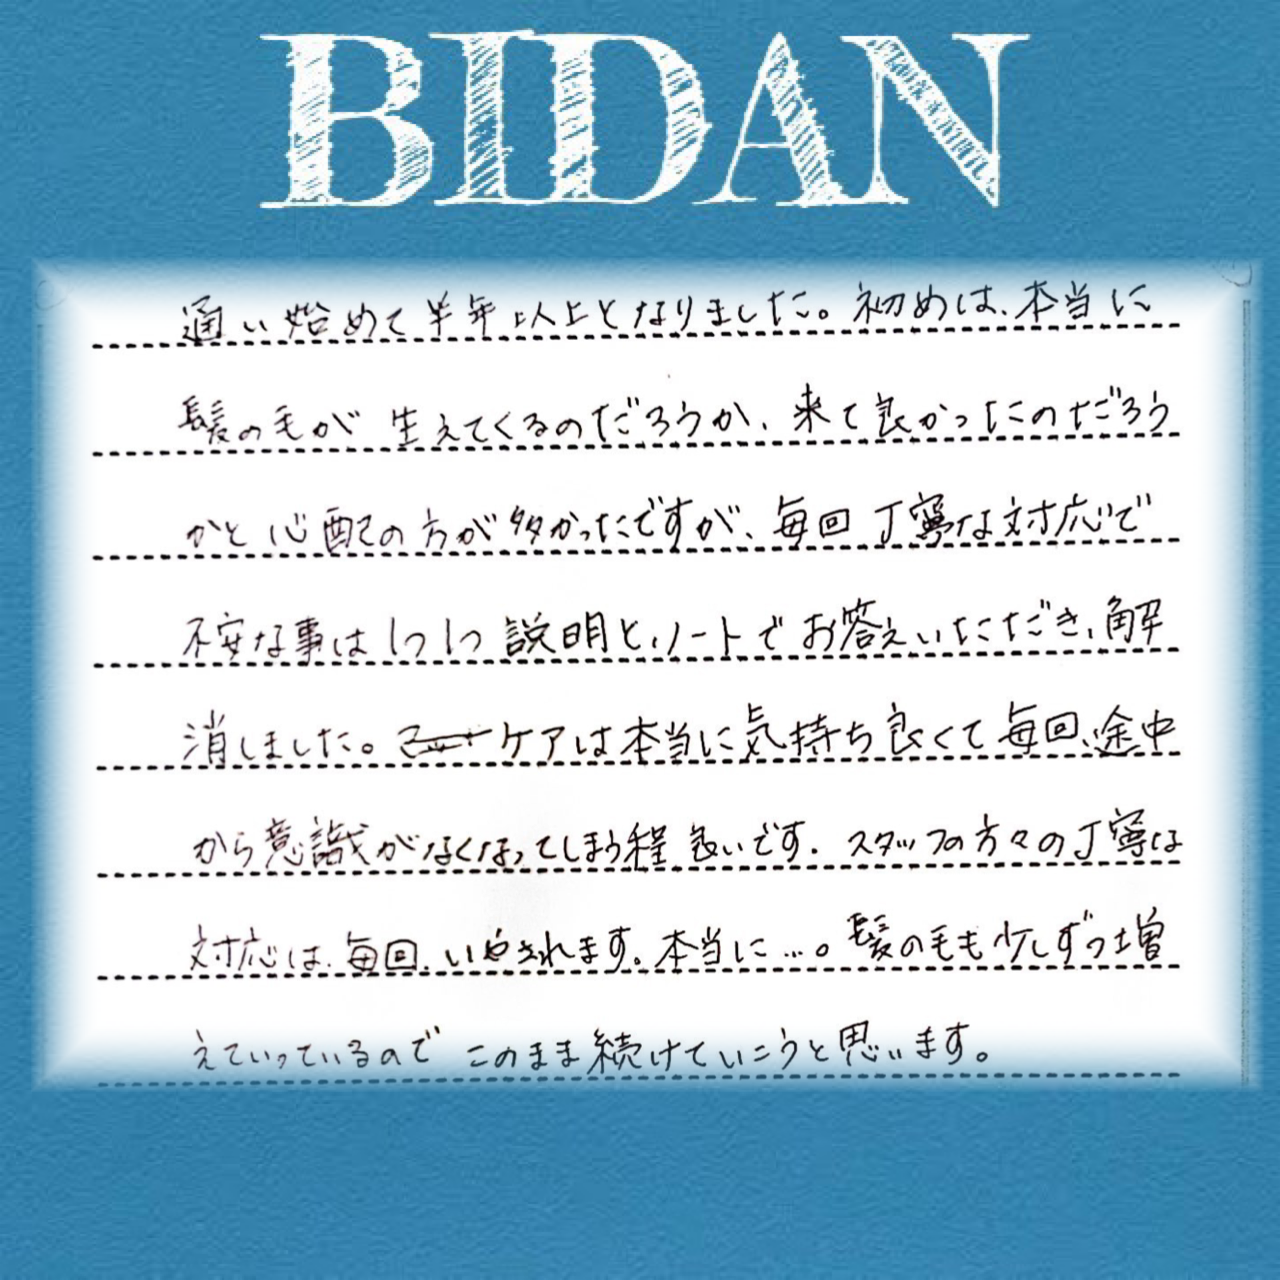 BIDAN
通い始めて半年以上となりました。初めは、本当に
髪の毛が生えてくるのだろうか、来て良かったのだろう
かと心配の方が多かったですが、毎回丁寧な対応で
不安な事は1つ1つ説明とノートでお答えいただき、解
消しました。ケアは本当に気持ち良くて毎回、途中
から意識がなくなってしまう程良いです。スタッフの方々の丁寧な
対応は、毎回、いやされます。本当に…。髪の毛も少しずつ増
えていっているのでこのまま続けていこうと思います。